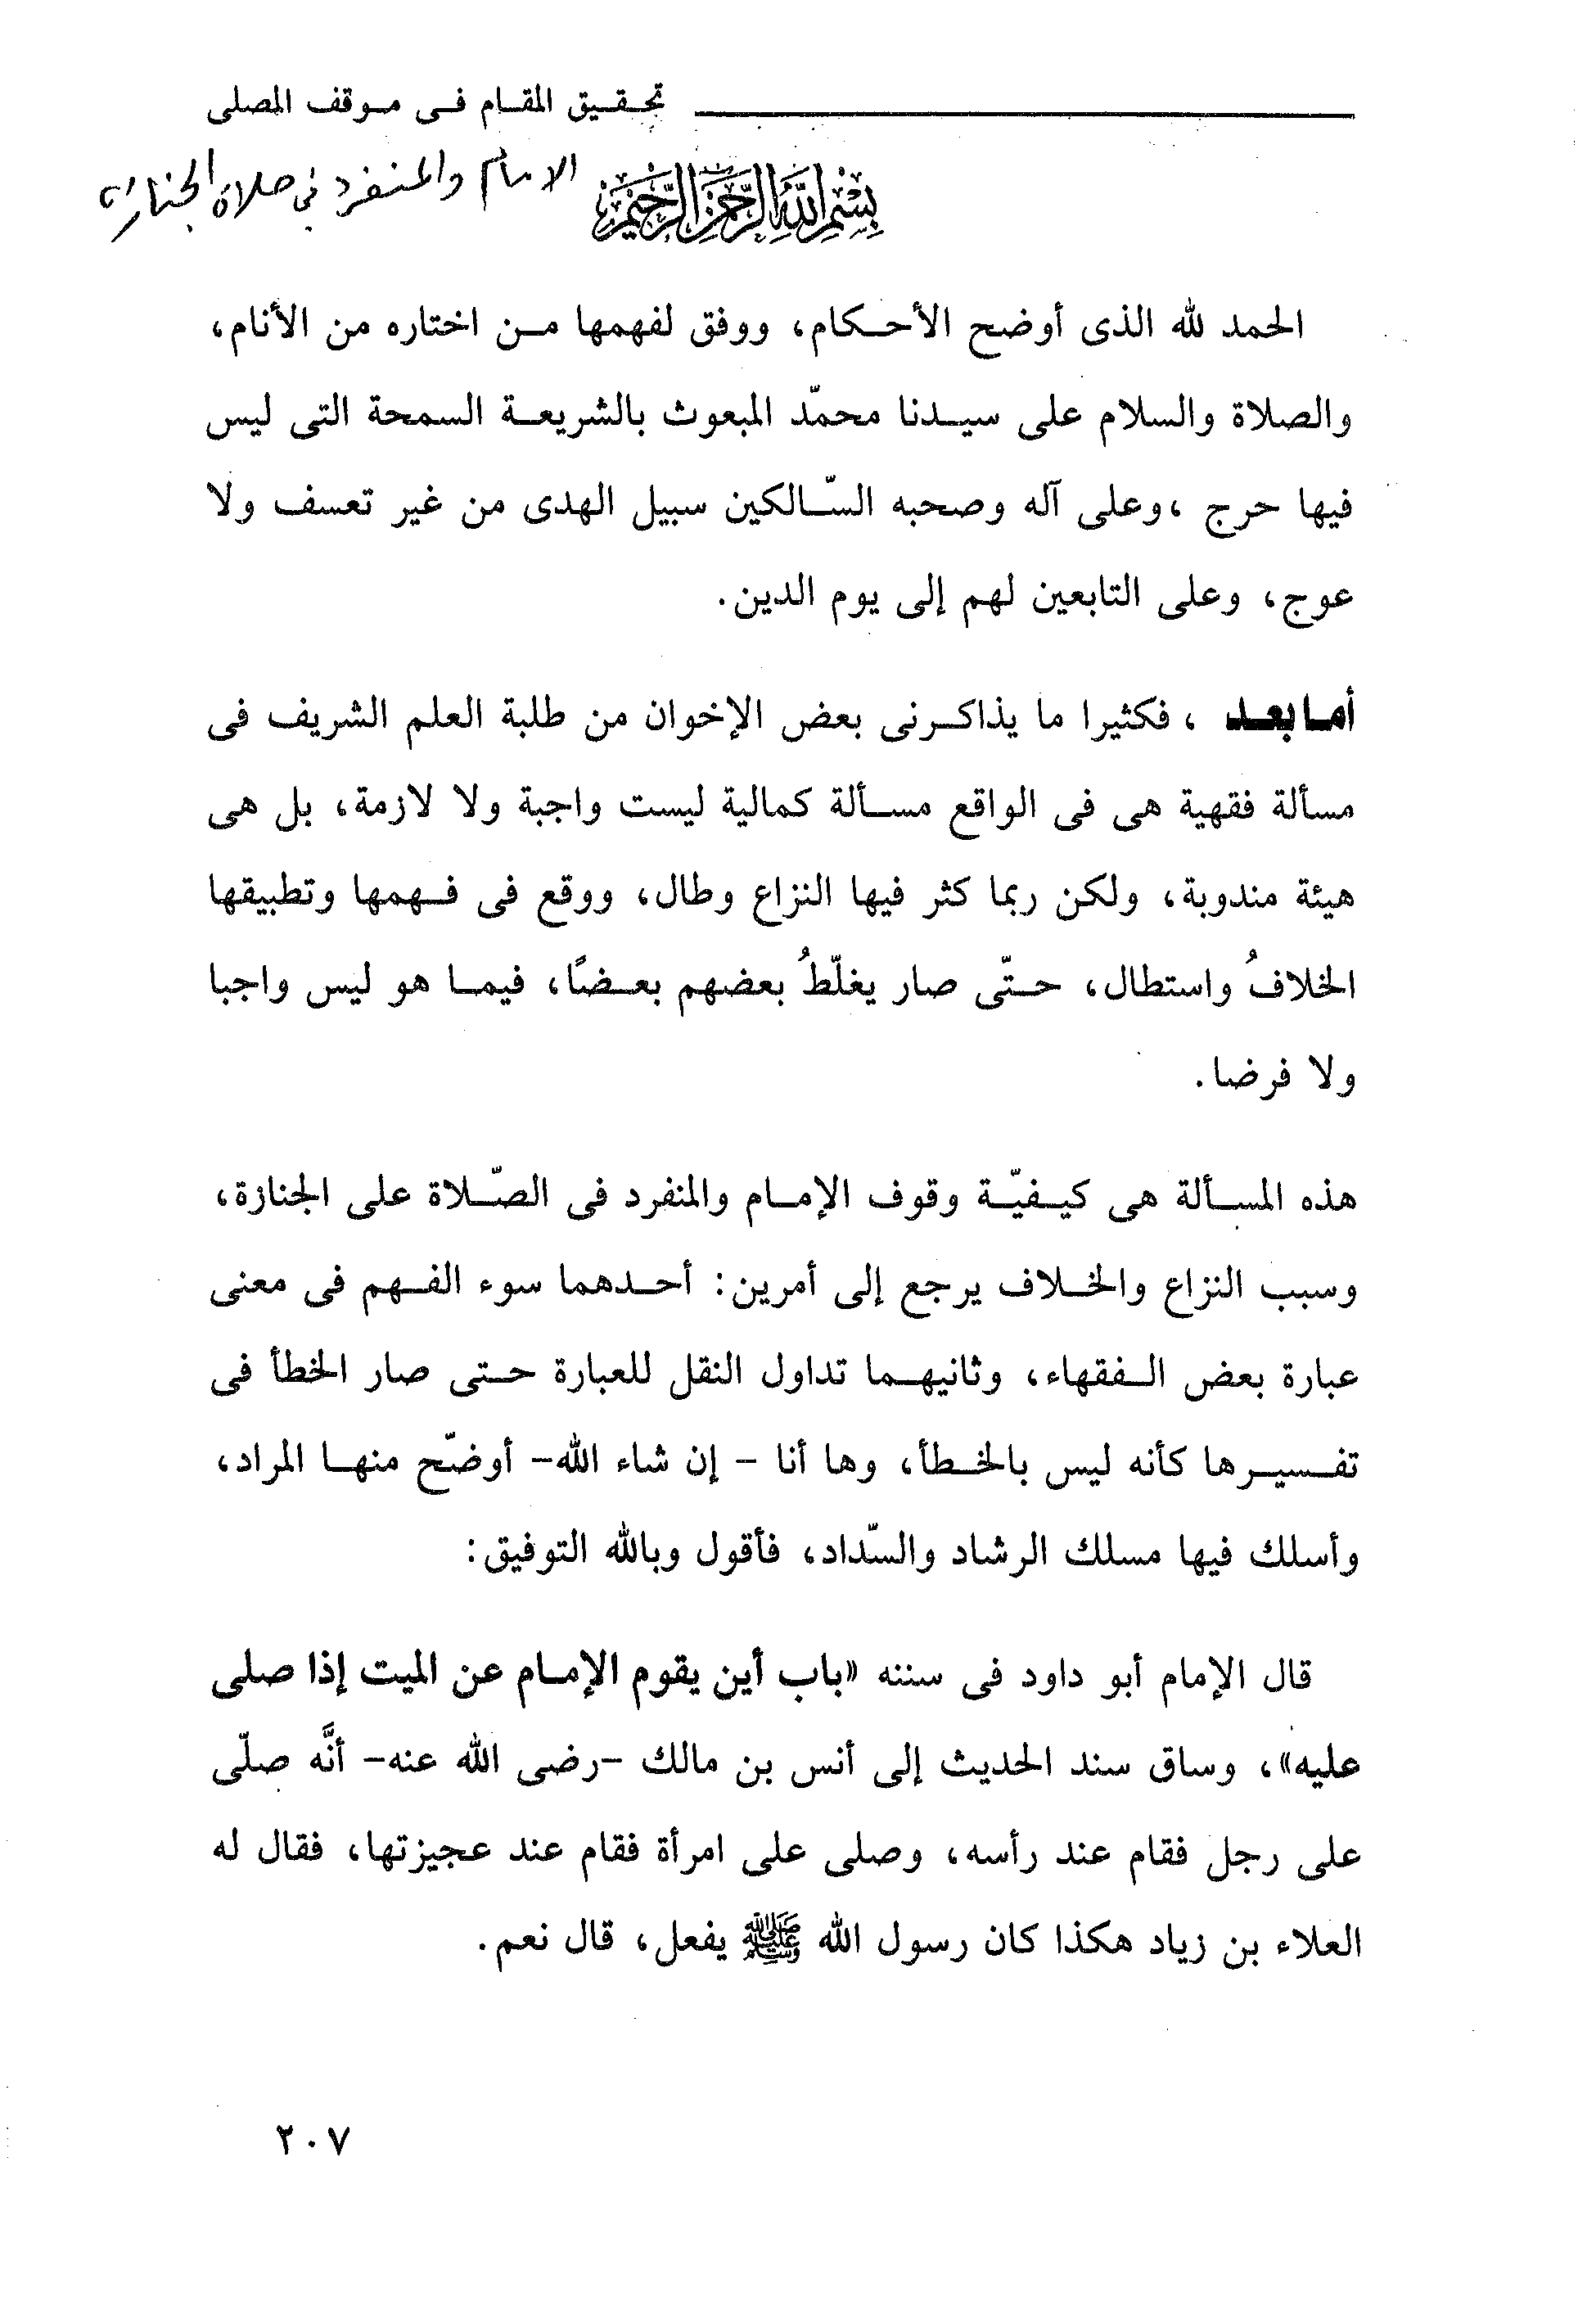 تحقيق المقام فى موقف المصلى
الامام والمنفرد في صلاة الجنازة
بِسْمِ اللَّهِ الرَّحْمَنِ الرَّحِيمِ
الحمد لله الذى أوضح الأحكام، ووفق لفهمها من اختاره من الأنام،
والصلاة والسلام على سيدنا محمّد المبعوث بالشريعة السمحة التى ليس
فيها حرج ،وعلى آله وصحبه السّالكين سبيل الهدى من غير تعسف ولا
عوج، وعلى التابعين لهم إلى يوم الدين.
أما بعد ، فكثيرا ما يذاكرنى بعض الإخوان من طلبة العلم الشريف فى
مسألة فقهية هى فى الواقع مسألة كمالية ليست واجبة ولا لازمة، بل هى
هيئة مندوبة، ولكن ربما كثر فيها النزاع وطال، ووقع فى فهمها وتطبيقها
الخلافُ واستطال، حتّى صار يغلّطُ بعضهم بعضًا، فيما هو ليس واجبا
ولا فرضا.
هذه المسألة هى كيفيّة وقوف الإمام والمنفرد فى الصّلاة على الجنازة،
وسبب النزاع والخلاف يرجع إلى أمرين: أحدهما سوء الفهم فى معنى
عبارة بعض الفقهاء، وثانيهما تداول النقل للعبارة حتى صار الخطأ فى
تفسيرها كأنه ليس بالخطأ، وها أنا - إن شاء الله- أوضّح منها المراد،
وأسلك فيها مسلك الرشاد والسّداد، فأقول وبالله التوفيق:
قال الإمام أبو داود فى سننه «باب أين يقوم الإمام عن الميت إذا صلى
عليه»، وساق سند الحديث إلى أنس بن مالك -رضى الله عنه- أنَّه صلّى
على رجل فقام عند رأسه، وصلى على امرأة فقام عند عجيزتها، فقال له
العلاء بن زياد هكذا كان رسول الله ﷺ يفعل، قال نعم.
٢٠٧